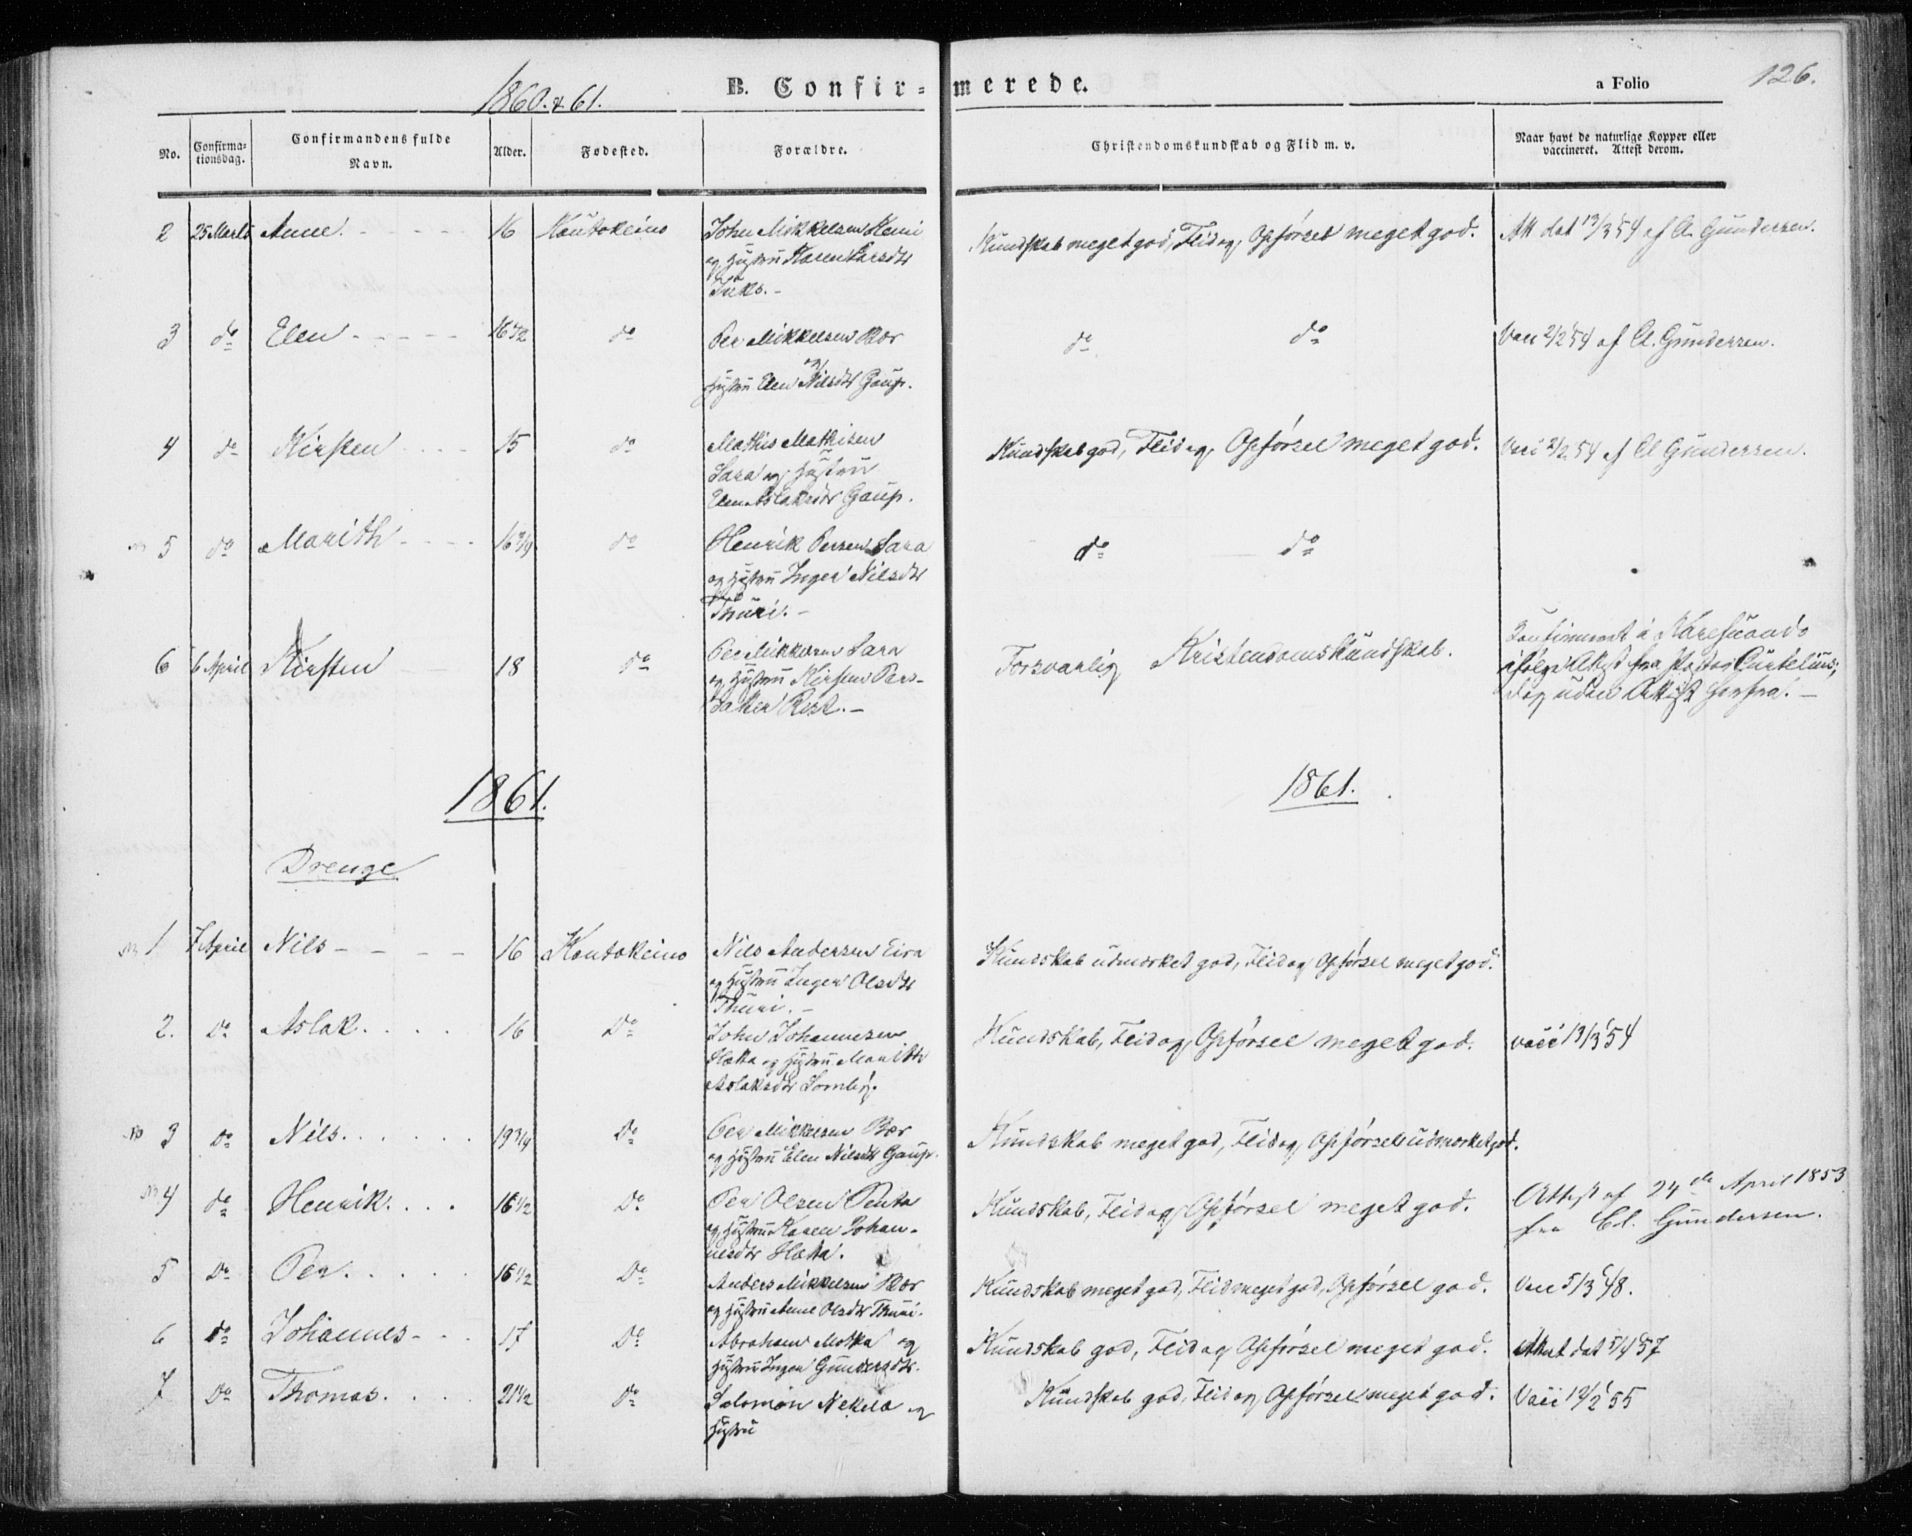 1860. & 61.
B. Confirmerede.
a Folio
126.
No.
Confirmationsdag.
Confirmandens fulde Navn.
Alder.
Fødested.
Forældre.
Christendomskundskab og Flid m. v.
Naar havt de naturlige Kopper eller vaccineret. Attest derom.
2 25 Marts Anne. 16 Koutokeino John Mikkelsen Kemi Kundskab meget god, Flid og Opførsel meget god. Att dat 13/3 54 af Cl. Gundersen.
og Hustru Karen Larsdtr
3 do Elen 16 1/2 do Per Mikkelsen Bær do do Vacc 2/2 54 af Cl. Gundersen.
og
Hustru Elen Nilsdtr Gaup.
4 do Kirsten 15 do Mathis Mathisen Kundskab god, Flid og Opførsel meget god. Vacc 2/2 54 af Cl Gundersen.
Sara og Hustru
Elen Aslaksdtr Gaup.
5 do Marith 16 3/4 do Henrik Persen Sara do do
og Hustru Inger Nilsdtr
Thuri.
6 6 April Kirsten 18 do Per Mikkelsen Sara Forsvarlig Kristendomskundskab. Confirmeret i Karesuando
og Hustru Kirsten Pers- ifølge Attest fra Pastor
datter dog uden Attest herfra.
1861. 1861.
Drenge
1 7 April Nils 16 Koutokeino Nils Andersen Eira Kundskab udmærket god, Flid og Opførsel meget god.
og Hustru Inger Olsdtr
Thuri.
2. Do Aslak. 16 Do John Johannesen Kundskab, Flid og Opførsel meget god. vacc 13/3 54
Hætta og Hustru Marith
Aslaksdtr Somby.
3 Do Nils. 19 3/4 Do Per Mikkelsen Bær Kundskab meget god, Flid og Opførsel udmærket god.
og Hustru Elen Nilsdtr Gaup.
4 do Henrik. 16 1/2 Do Per Olsen Penta Kundskab, Flid og Opførsel meget god. Attest af 24de April 1853
og Hustru Karen Johan- fra Cl. Gundersen.
nesdtr Hætta.
5 Do Per. 16 1/2 Do Anders Mikkelsen Bær Kundskab meget god, Flid meget god, Opførsel god. Vacc 5/3 48.
og Hustru Anne Olsdtr Thuri.
6 do Johannes 17 Do Abraham Motka og Kundskab god, Flid og Opførsel meget god. Attest dat 5/4 57
Hustru Inger
7 Do Thomas. 21 1/2 do Solomon Nekela og Kundskab god, Flid og Opførsel meget god. Vacc 12/2 55
Hustru